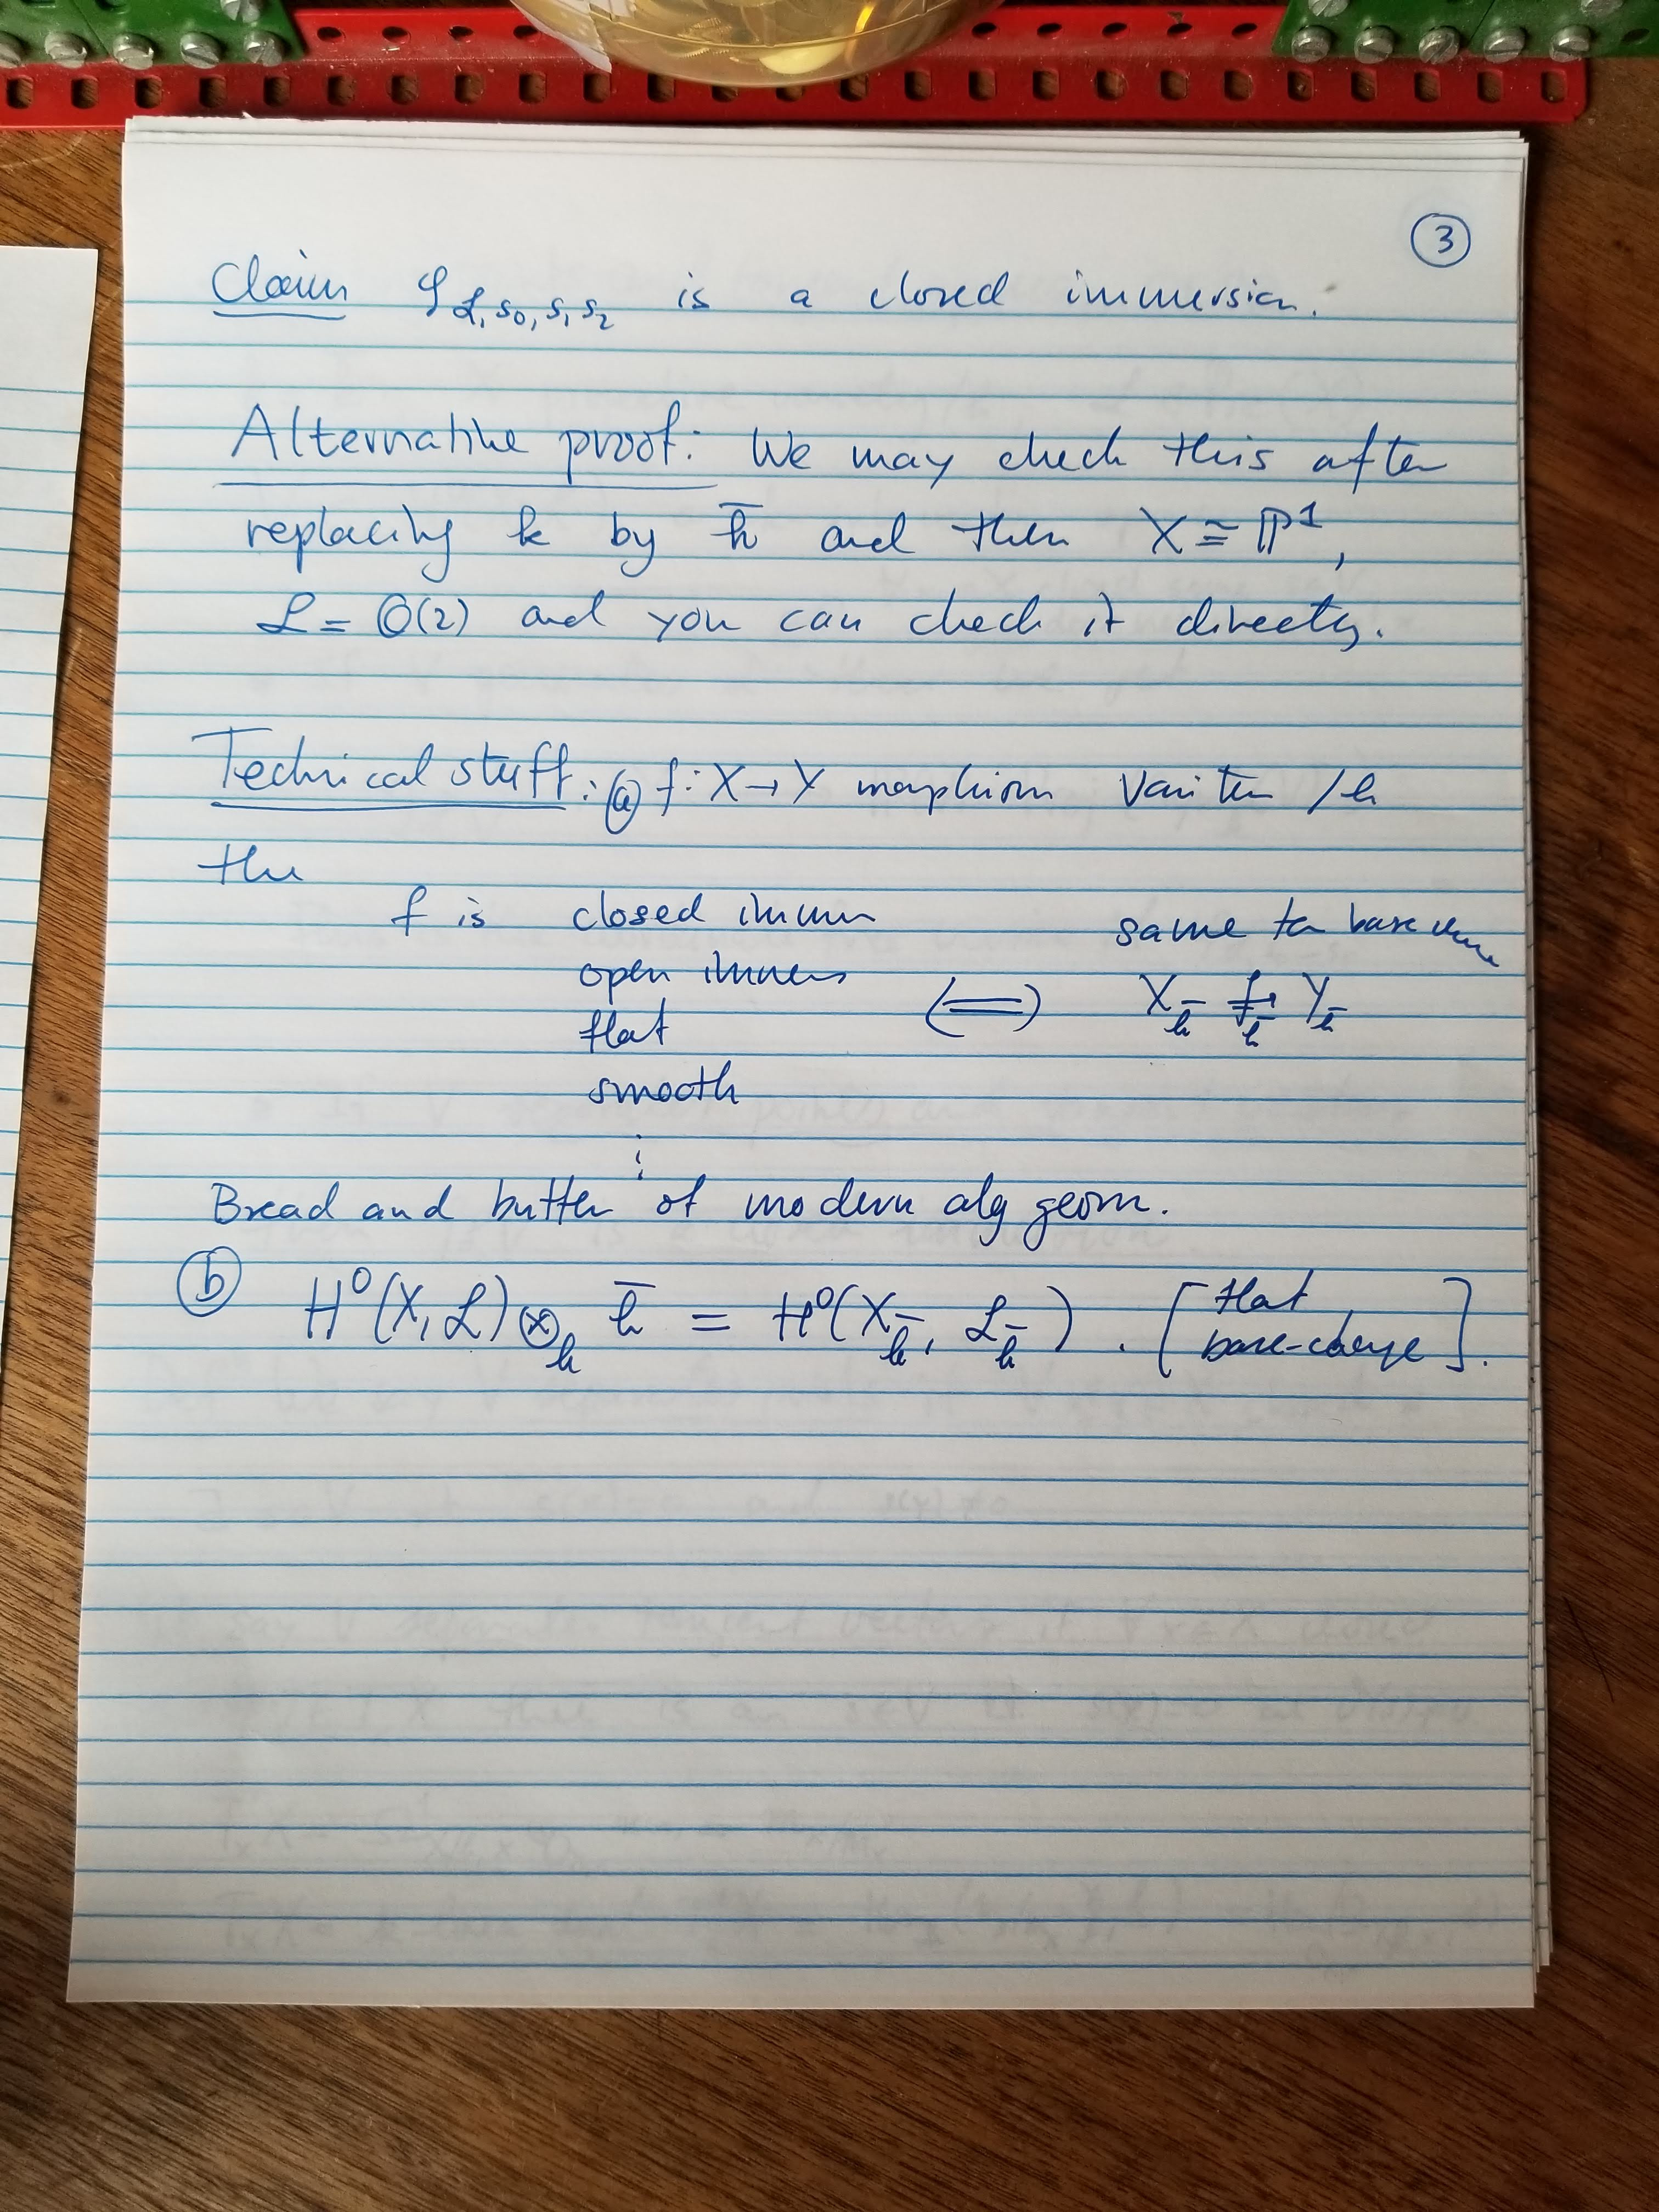 3
Claim φ_{ℒ, s₀, s₁ s₂} is a closed immersion.
Alternative proof: We may check this after
replacing k by k̄ and then X ≅ ℙ¹,
ℒ = O(2) and you can check it directly.
Technical stuff: (a) f: X → Y morphism varieties /k
the
f is closed immer same for base change
open immers ⟺ X_k̄ →^{f_k̄} Y_k̄
flat
smooth
⋮
Bread and butter of modern alg geom.
(b) H⁰(X, ℒ) ⊗_k k̄ = H⁰(X_k̄, ℒ_k̄). [flat base-change].